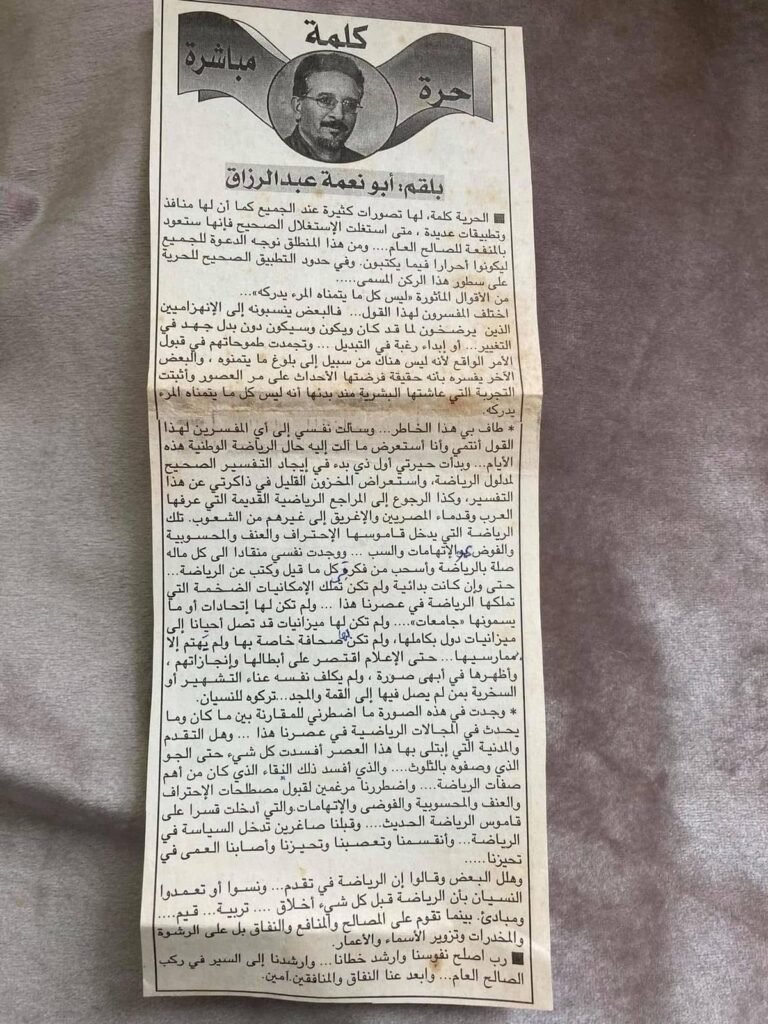 كلمة
حرة
مباشرة
بلقم: أبو نعمة عبدالرزاق
■ الحرية كلمة، لها تصورات كثيرة عند الجميع كما أن لها منافذ
وتطبيقات عديدة ، متى استغلت الإستغلال الصحيح فإنها ستعود
بالمنفعة للصالح العام.... ومن هذا المنطلق نوجه الدعوة للجميع
ليكونوا أحرارا فيما يكتبون. وفي حدود التطبيق الصحيح للحرية
على سطور هذا الركن المسمى.....
من الأقوال المأثورة «ليس كل ما يتمناه المرء يدركه»...
اختلف المفسرون لهذا القول... فالبعض ينسبونه إلى الإنهزاميين
الذين يرضخون لما قد كان ويكون وسيكون دون بدل جهد في
التغيير... أو إبداء رغبة في التبديل ... وتجمدت طموحاتهم في قبول
الأمر الواقع لأنه ليس هناك من سبيل إلى بلوغ ما يتمنوه ، والبعض
الآخر يفسره بأنه حقيقة فرضتها الأحداث على مر العصور وأثبتت
التجربة التي عاشتها البشرية مند بدئها أنه ليس كل ما يتمناه المرء
يدركه.
* طاف بي هذا الخاطر... وسألت نفسي إلى أي المفسرين لهذا
القول أنتمي وأنا أستعرض ما آلت إليه حال الرياضة الوطنية هذه
الأيام... وبدأت حيرتي أول ذي بدء في إيجاد التفسير الصحيح
لمدلول الرياضة، واستعراض المخزون القليل في ذاكرتي عن هذا
التفسير، وكذا الرجوع إلى المراجع الرياضية القديمة التي عرفها
العرب وقدماء المصريين والإغريق إلى غيرهم من الشعوب. تلك
الرياضة التي يدخل قاموسها الإحتراف والعنف والمحسوبية
والفوضى والإتهامات والسب ... ووجدت نفسي منقادا الى كل ماله
صلة بالرياضة وأسحب من فكري كل ما قيل وكتب عن الرياضة...
حتى وإن كانت بدائية ولم تكن تملك الإمكانيات الضخمة التي
تملكها الرياضة في عصرنا هذا ... ولم تكن لها إتحادات أو ما
يسمونها «جامعات».... ولم تكن لها ميزانيات قد تصل أحيانا إلى
ميزانيات دول بكاملها، ولم تكن لها صحافة خاصة بها ولم يهتم إلا
ممارسيها... حتى الإعلام اقتصر على أبطالها وإنجازاتهم ،
وأظهرها في أبهى صورة ، ولم يكلف نفسه عناء التشهير أو
السخرية بمن لم يصل فيها إلى القمة والمجد...تركوه للنسيان.
* وجدت في هذه الصورة ما اضطرني للمقارنة بين ما كان وما
يحدث في المجالات الرياضية في عصرنا هذا ... وهل التقدم
والمدنية التي إبتلى بها هذا العصر أفسدت كل شيء حتى الجو
الذي وصفوه بالتلوث.... والذي أفسد ذلك النقاء الذي كان من أهم
صفات الرياضة.... واضطررنا مرغمين لقبول مصطلحات الإحتراف
والعنف والمحسوبية والفوضى والإتهامات.والتي أدخلت قسرا على
قاموس الرياضة الحديث.... وقبلنا صاغرين تدخل السياسة في
الرياضة... وأنقسمنا وتعصبنا وتحيزنا وأصابنا العمى في
تحيزنا.....
وهلل البعض وقالوا إن الرياضة في تقدم... ونسوا أو تعمدوا
النسيان بأن الرياضة قبل كل شيء أخلاق .... تربية... قيم....
ومبادئ. بينما تقوم على المصالح والمنافع والنفاق بل على الرشوة
والمخدرات وتزوير الأسماء والأعمار.
■ رب اصلح نفوسنا وارشد خطانا... وارشدنا إلى السير في ركب
الصالح العام... وابعد عنا النفاق والمنافقين.آمين.